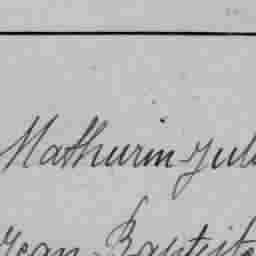 Mathurin Jul
Jean Baptiste